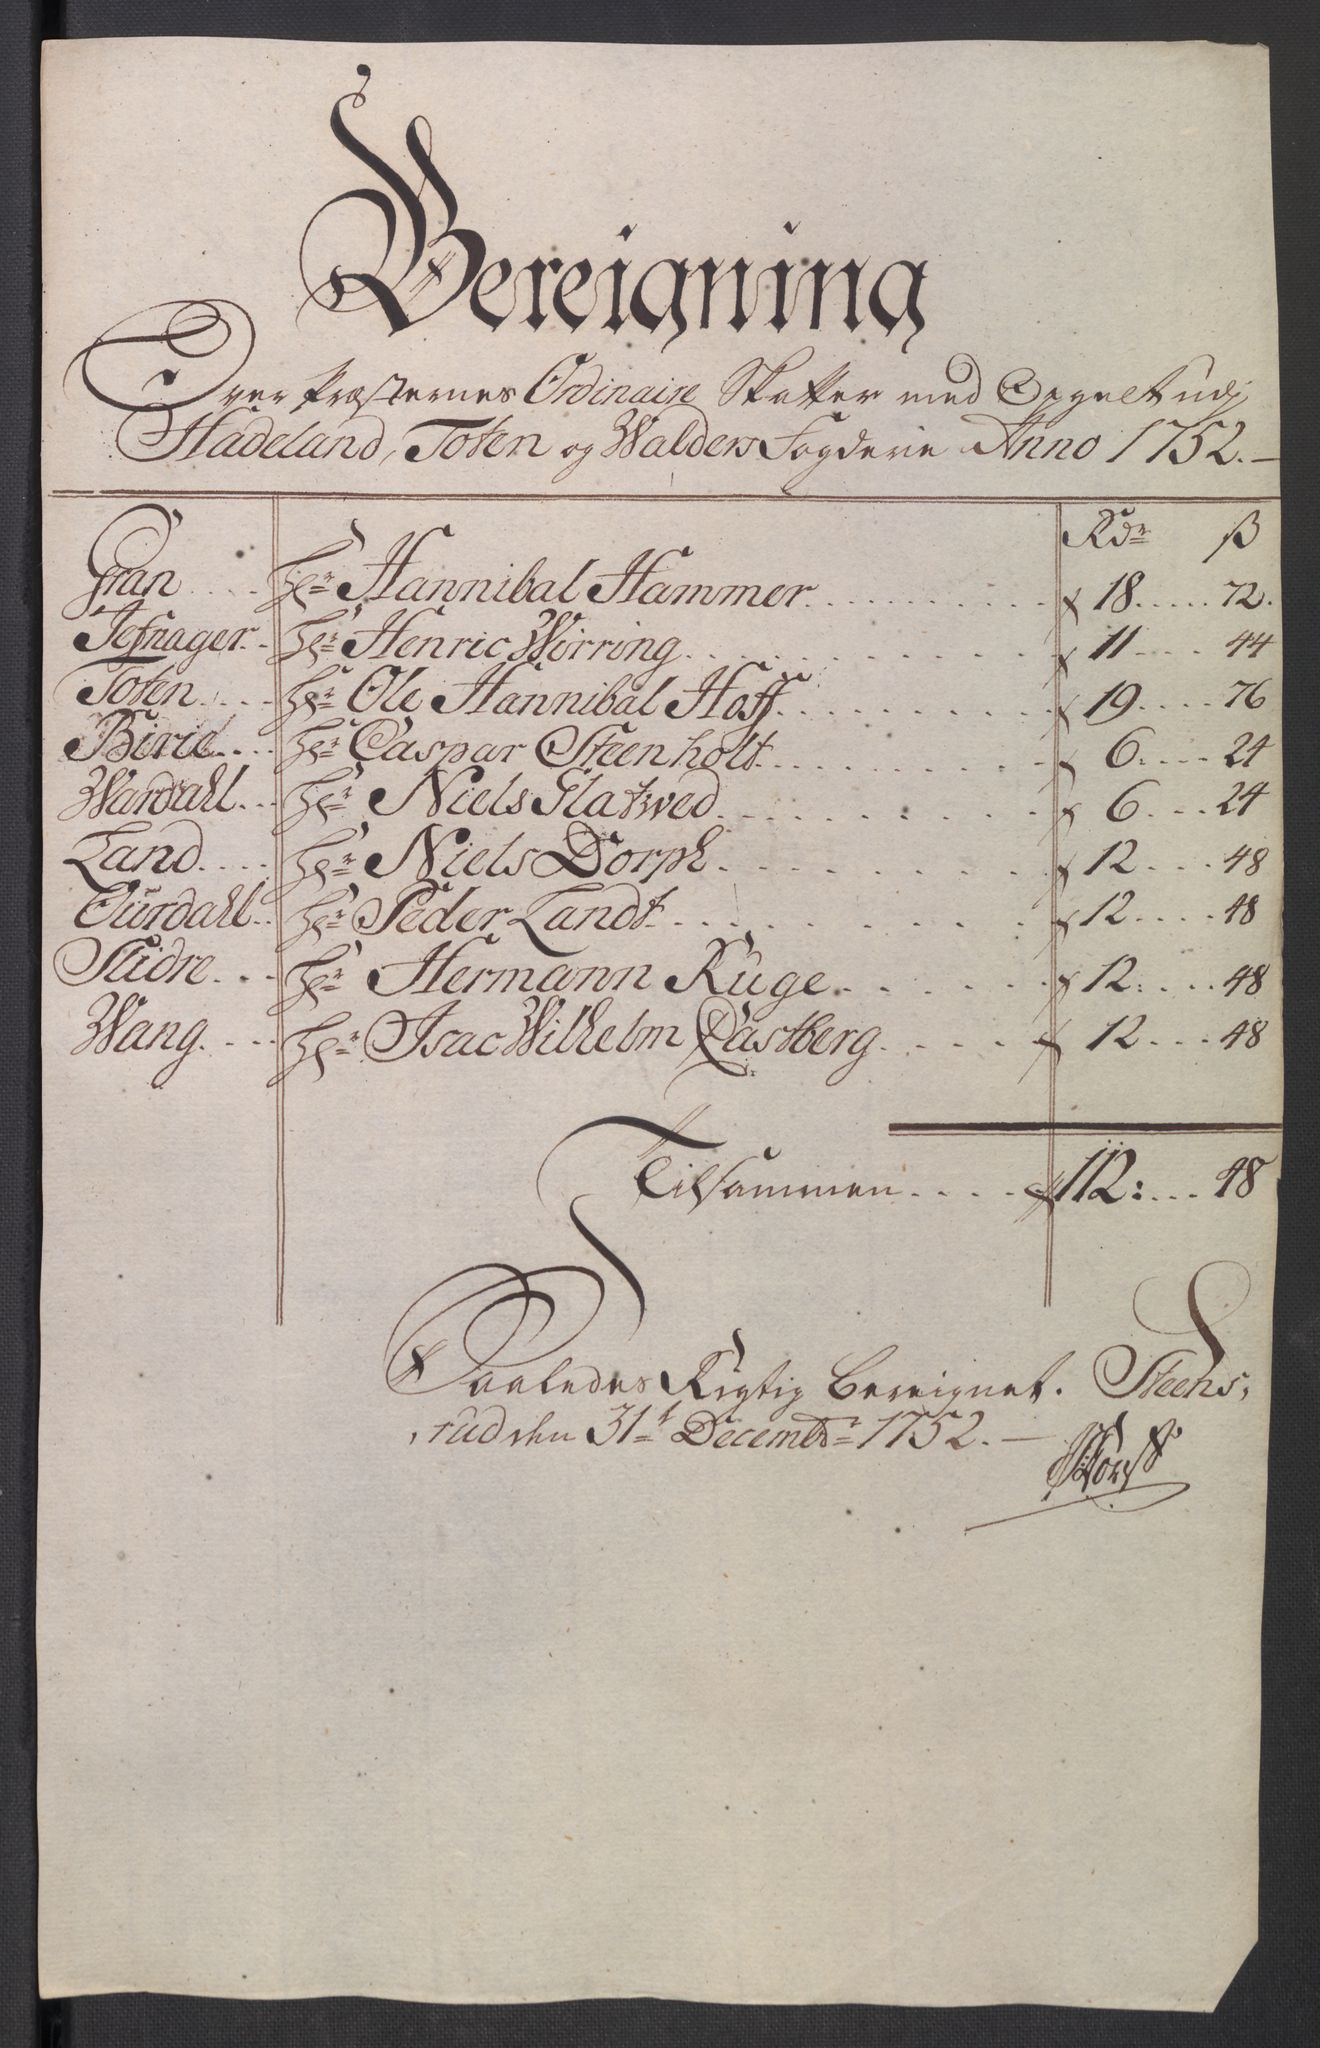 Bereigning
Over Præsternes Ordinaire Skatter med Opgelt udj
Hadeland, Toten og Walders Fogderie Anno 1752.
Rdr ß
Gran .... Hr Hannibal Hammer .......... 18 ..... 72.
Jefnager .. Hr Henric Wirring .......... 11 .... 44
Toten .... Hr Ole Hannibal Hoff .......... 19 .... 76
Birid .... Hr Caspar Steenholt .......... 6 .... 24
Wardahl ... Hr Niels Flatwed .......... 6 ... 24
Land .... Hr Niels Dorph .......... 12 ... 48
Ourdahl .. Hr Peder Landt .......... 12 .... 48
Slidre ... Hr Hermann Ruge ...... 12 .... 48
Wang .... Hr Isac Wilhelm Castberg ..... 12 ... 48
Tilsammen .... 112: ... 48
Saaledes Rigtig bereignet. Steens,
rud den 31t Decembr 1752.